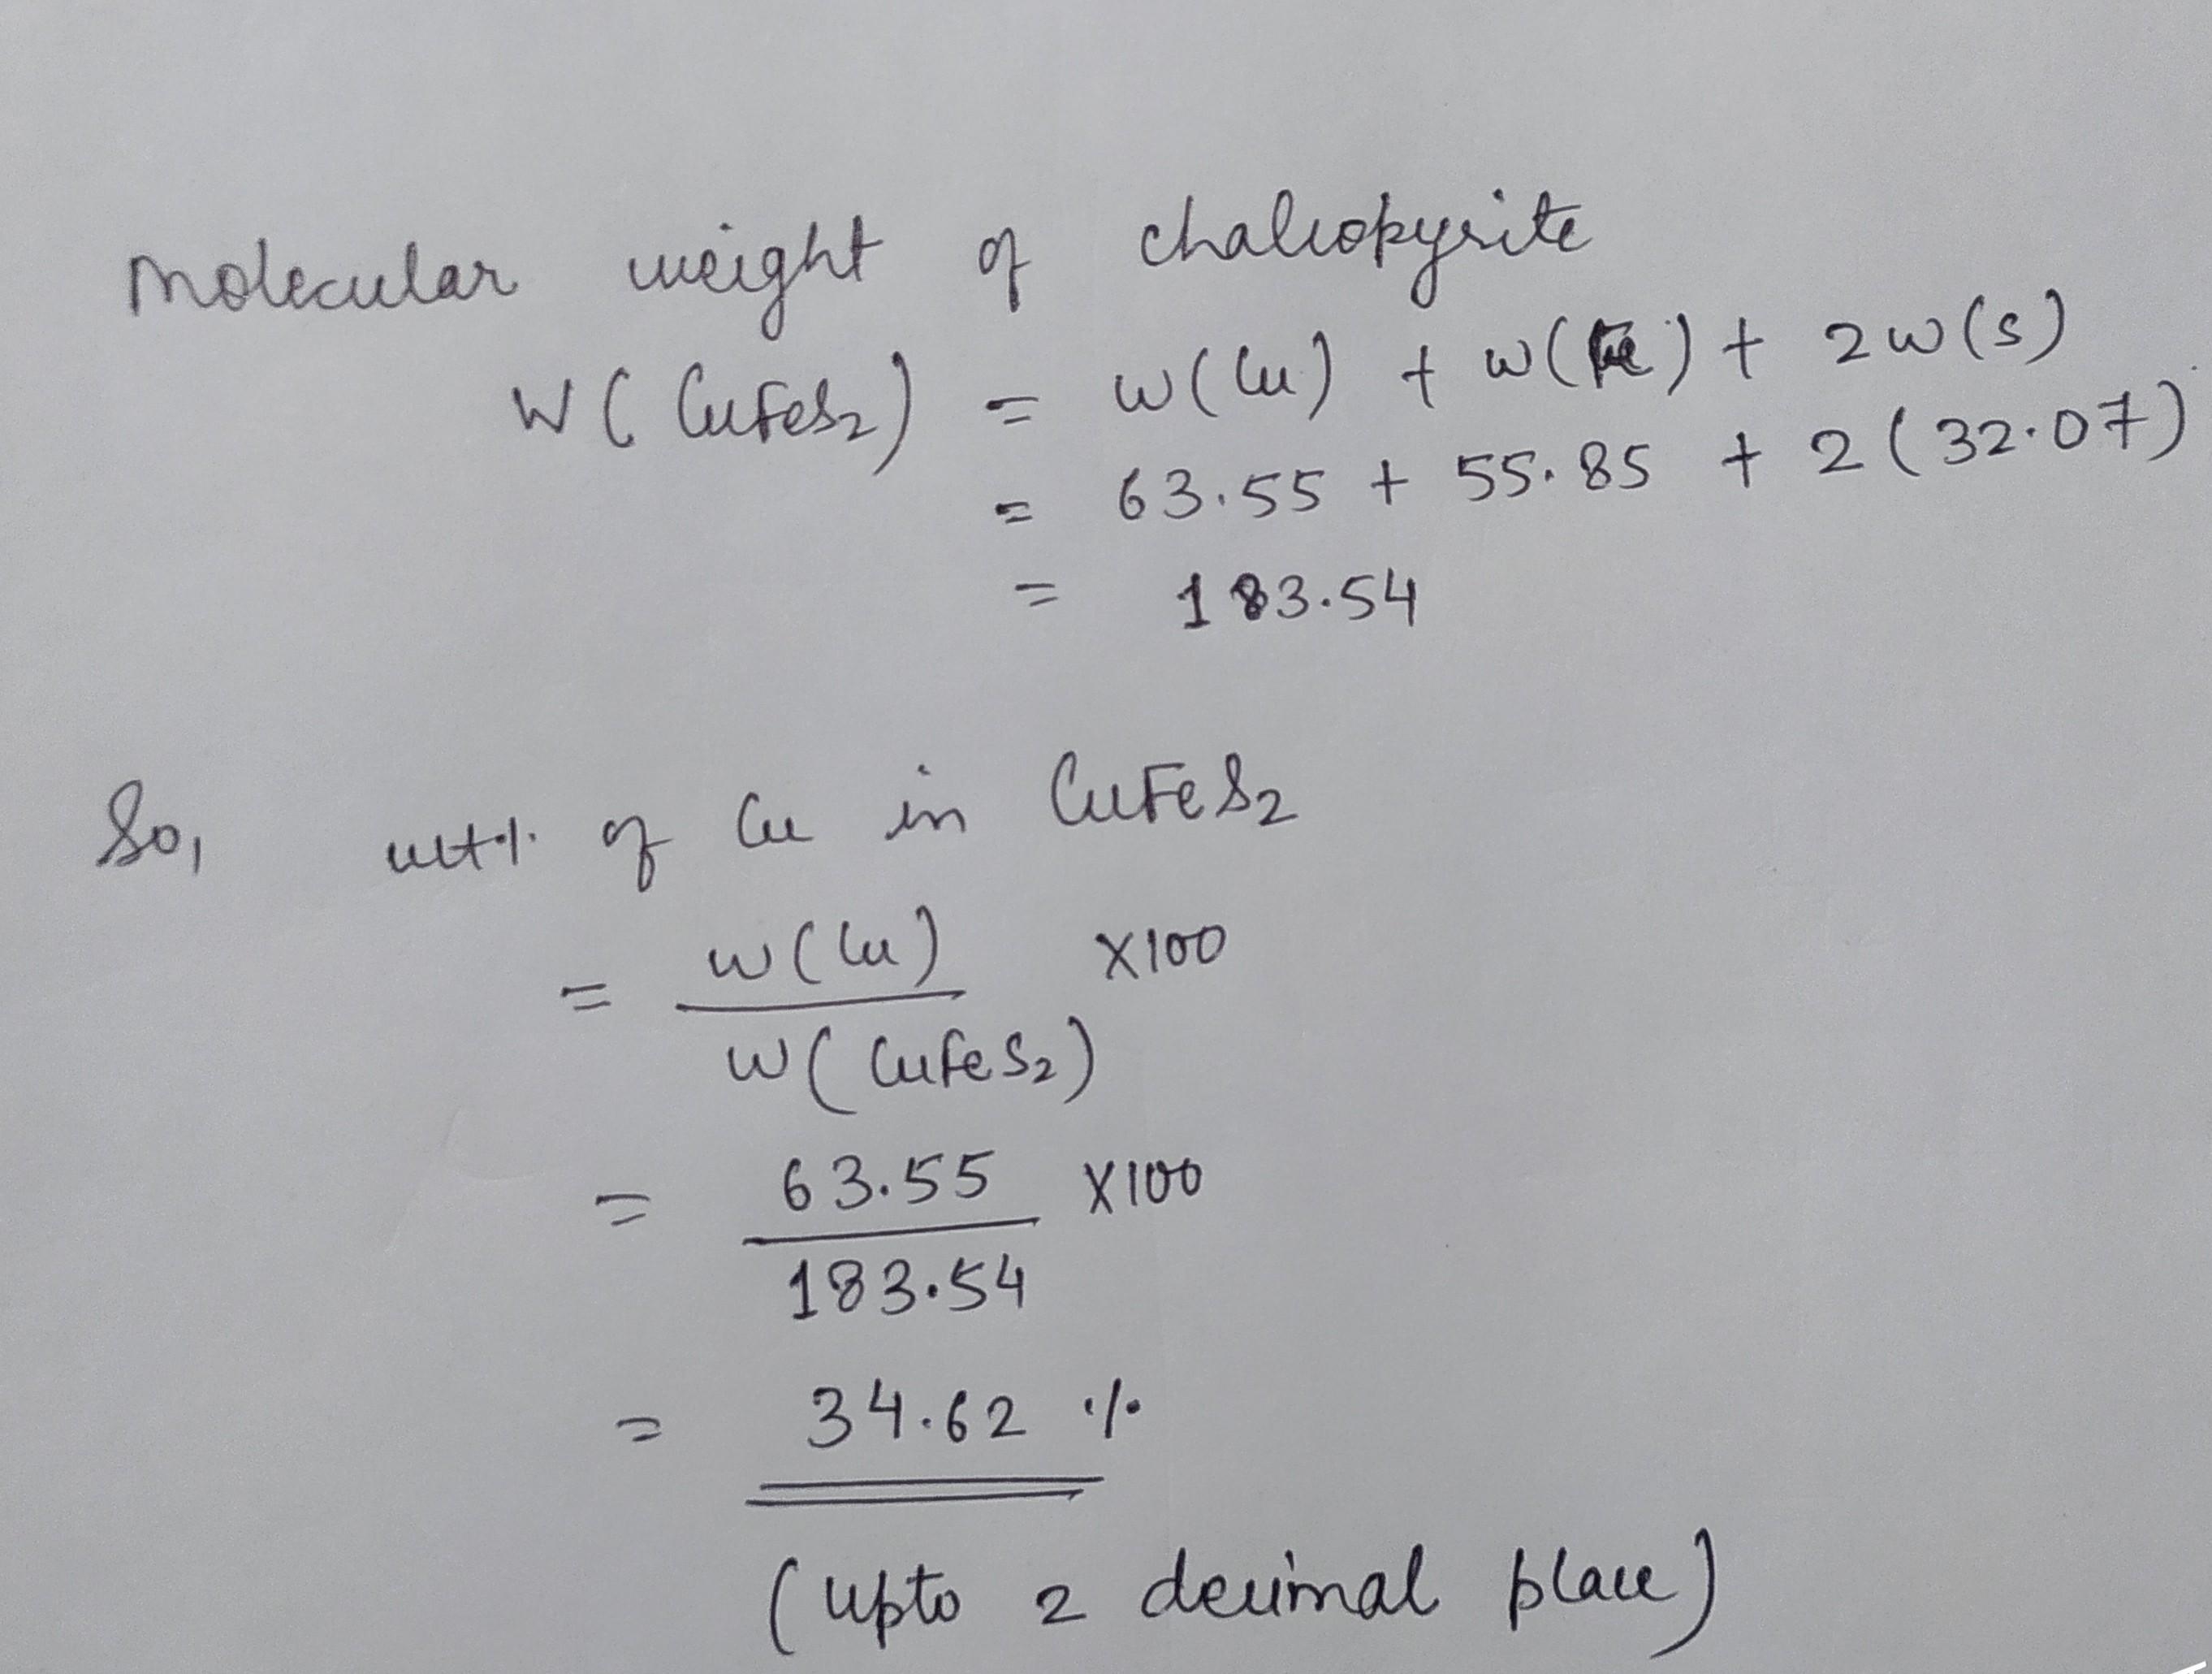 Molecular weight of chalcopyrite
W(CuFeS₂) = w(Cu) + w(Fe) + 2w(s)
= 63.55 + 55.85 + 2(32.07)
= 183.54
So, wt% of Cu in CuFeS₂
= w(Cu) / w(CuFeS₂) X100
= 63.55 / 183.54 X100
= 34.62 %
(upto 2 decimal place)